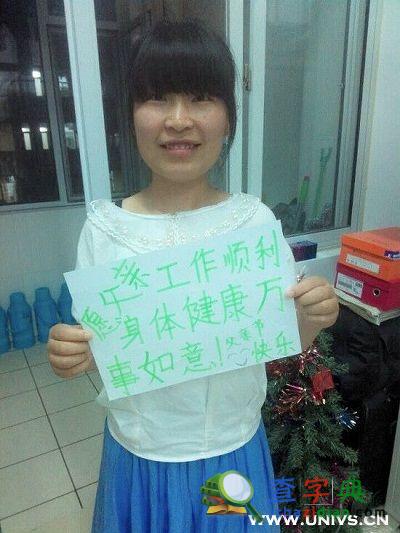 愿父亲工作顺利
身体健康万
事如意!父亲节
快乐
查字典
WWW.UNIVS.CN